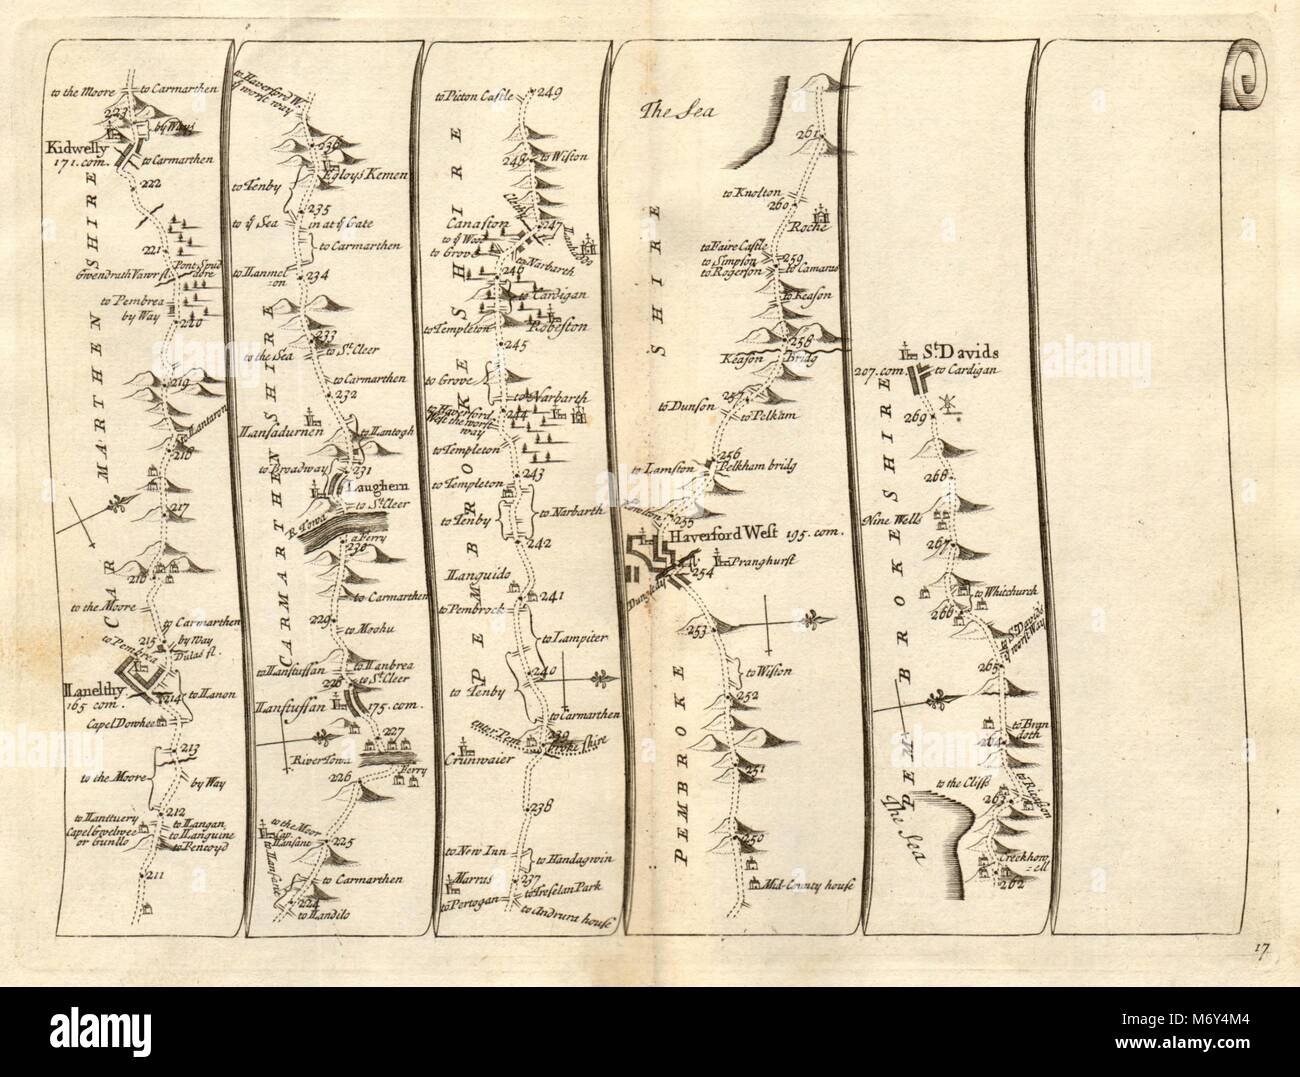 to the Moore
to Carmarthen
223
by Ways
Kidwelly
171. com.
to Carmarthen
222
CARMARTHEN SHIRE
221
Pont Spud
dore
Gwendrath Vawr fl
to Pembrea
by Way
220
219
to Lantaron
218
217
216
to the Moore
to Carmarthen
215
by Way
to Pembrea
Dulas fl.
Llanelthy
165 com.
214
to Llanon
Capel Dowhee
213
to the Moore
by Way
212
to Llanttuery
to Llangan
Capel Gwelwee
or Gunllo
to Llanguine
to Pencoyd
211
to Haverford W.
ye worst way
236
Egloys Kemen
to Tenby
235
to ye Sea
in at ye Gate
to Carmarthen
to Llanmel
on
234
233
to the Sea
to St. Cleer
CARMARTHEN SHIRE
to Carmarthen
232
Llansadurnen
to Llantogh
to Broadway
231
Laughern
to St. Cleer
R. Towa
a Ferry
230
to Carmarthen
229
to Moohu
to Llanstussan
to Llanbrea
228
to St. Cleer
Llanstussan
175. com.
227
River Towa
Ferry
226
to the Moor
Cap.
Llansane
225
to Llansane
to Carmarthen
224
to Llandilo
to Picton Castle
249
248
to Wiston
PEMBROKE SHIRE
Canaston
247
to ye Wood
to Grove
to Narbarth
246
to Cardigan
Robeston
to Templeton
245
to Grove
to Narbarth
to Haverford
West the worst
way
244
to Templeton
243
to Templeton
to Narbarth
to Tenby
242
Llanguido
241
to Pembrock
to Lampiter
240
to Tenby
to Carmarthen
239
Pembroke shire
Crunwaier
238
to New Inn
to Llandagwin
Marras
237
to Treselan Park
to Portogan
to Andrunt house
The Sea
261
to Knolton
260
Roche
to Faire Castle
to Simpson
to Rogerson
259
to Camarus
to Keason
PEMBROKE SHIRE
258
Keason Bridg
257
to Dunson
to Pelkam
256
to Lamston
Pelkham bridg
255
Haverford West 195. com.
Pranghurst
254
Dungledy fl.
253
to Wiston
252
251
250
Mid-County house
St. Davids
207. com.
to Cardigan
269
PEMBROKE SHIRE
268
Nine Wells
267
to Whitchurch
266
to St. Davids
ye worst Way
265
to Bran
doth
264
to the Cliffs
263
to Rickeson
The Sea
Creckhow
ell
262
17
alamy
alamy
alamy
Image ID: M6Y4M4
www.alamy.com